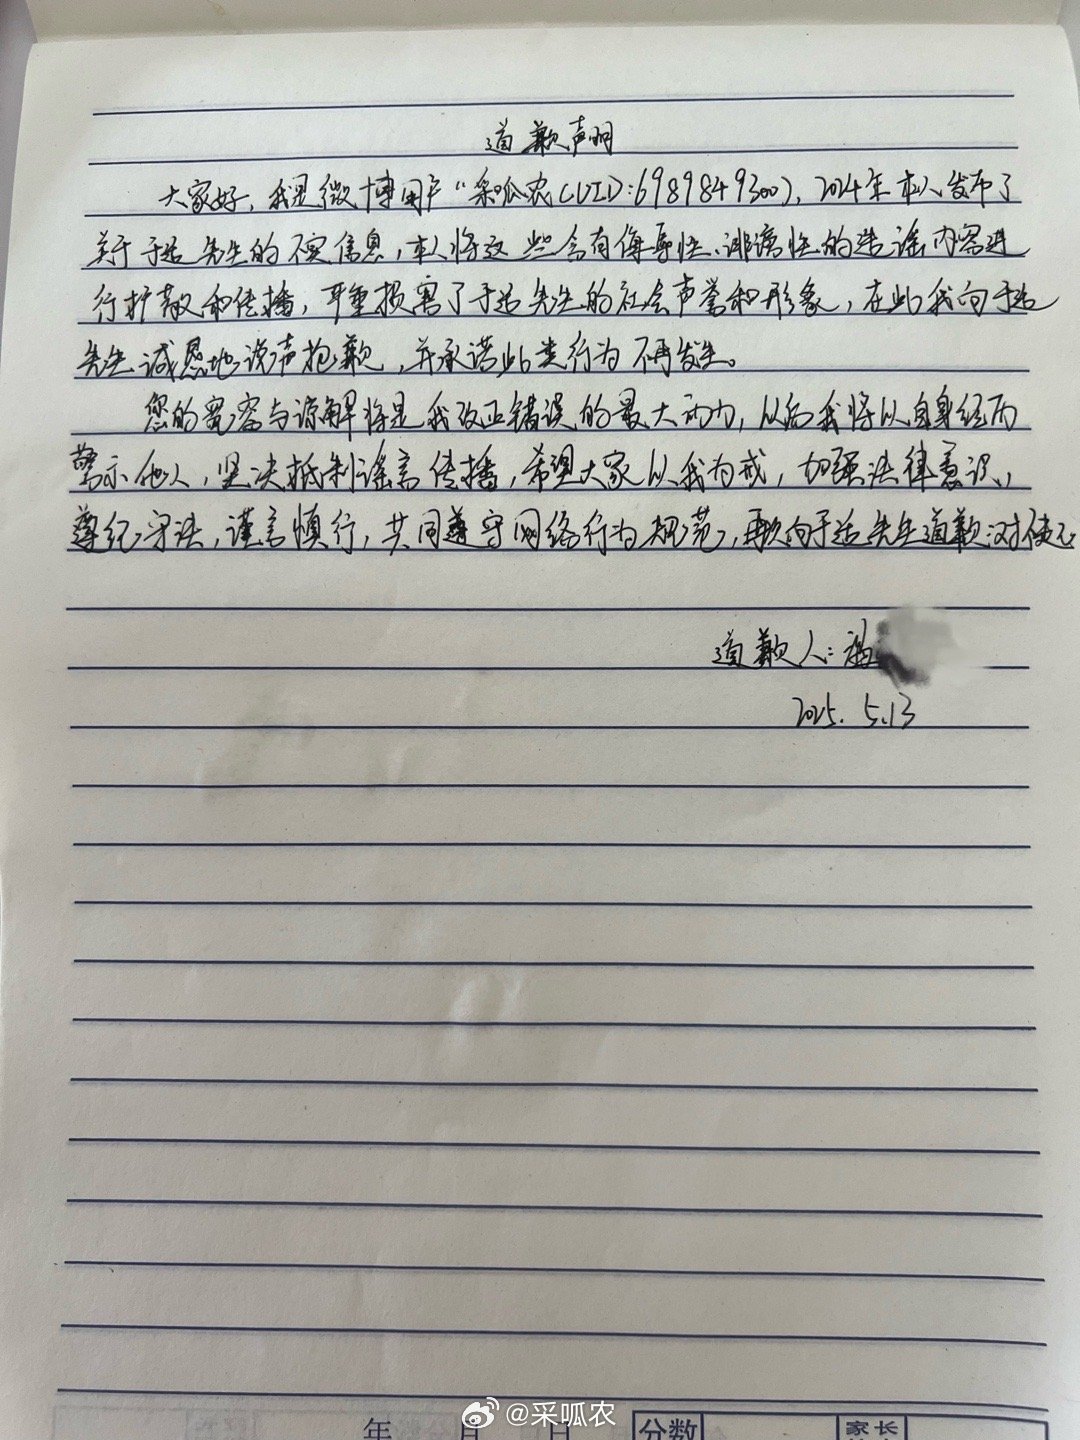 道歉声明
大家好，我是微博用户“采呱农(UID:6989849300)，2024年本人发布了
关于于适先生的不实信息，本人将这些含有侮辱性、诽谤性的造谣内容进
行扩散和传播，严重损害了于适先生的社会声誉和形象，在此我向于适
先生诚恳地说声抱歉，并承诺此类行为不再发生。
您的宽容与谅解将是我改正错误的最大动力，以后我将以自身经历
警示他人，坚决抵制谣言传播，希望大家以我为戒，加强法律意识，
遵纪守法，谨言慎行，共同遵守网络行为规范，再次向于适先生道歉：对使不
道歉人：
2025.5.13
@采呱农
年 月 日 分数 家长